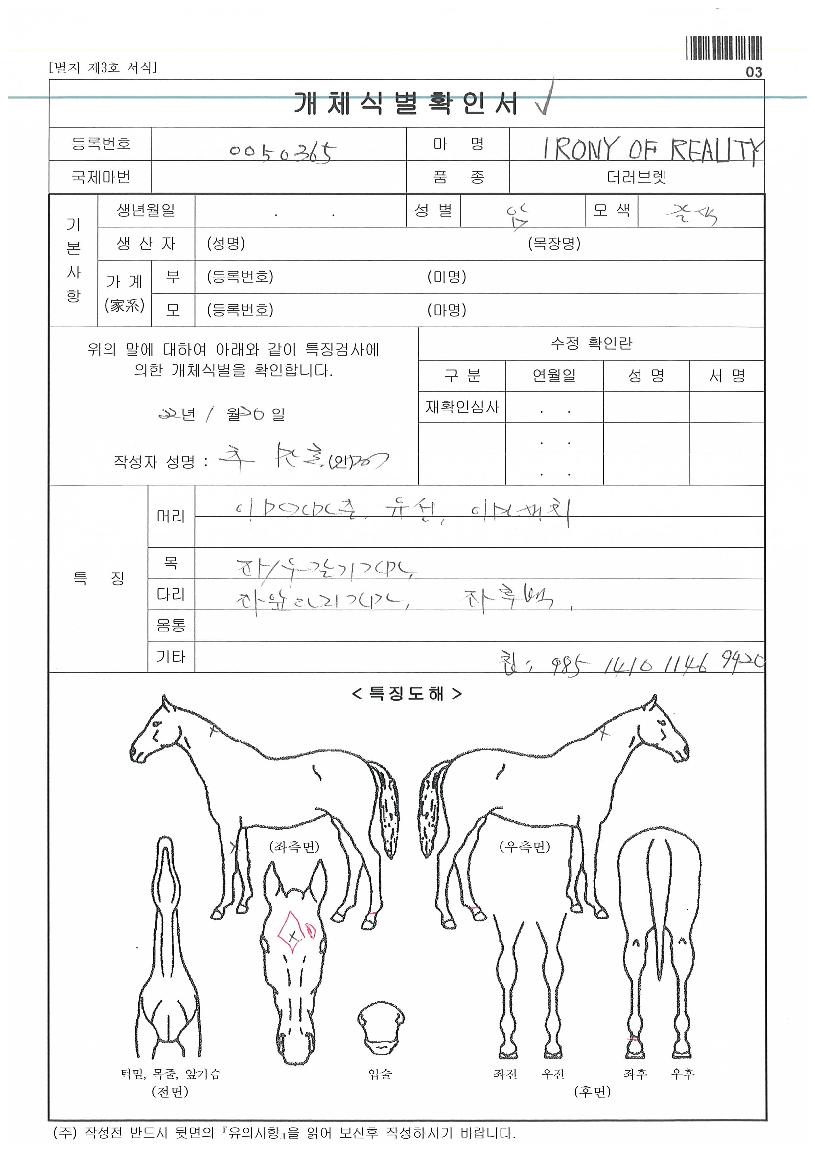 03
[별지 제3호 서식]
개체식별확인서 ✓
등록번호 0050365 마 명 IRONY OF REALITY
국제마번 품 종 더러브렛
기본사항
생년월일 . . 성별 암 모색
생 산 자 (성명) (목장명)
가 계 (家系) 부 (등록번호) (마명)
모 (등록번호) (마명)
위의 말에 대하여 아래와 같이 특징검사에
의한 개체식별을 확인합니다.
22년 1월 20일
작성자 성명 : (인)
수정 확인란
구 분 연월일 성 명 서 명
재확인심사 . .
. .
. .
특 징
머리
목 좌/우갈기가마,
다리 좌앞다리가마, 좌후백,
몸통
기타 칩: 985 1410 1146 9420
< 특징도해 >
(좌측면) (우측면)
턱밑, 목줄, 앞가슴 입술 좌전 우전 좌후 우후
(전면) (후면)
(주) 작성전 반드시 뒷면의 『유의사항』을 읽어 보신후 작성하시기 바랍니다.